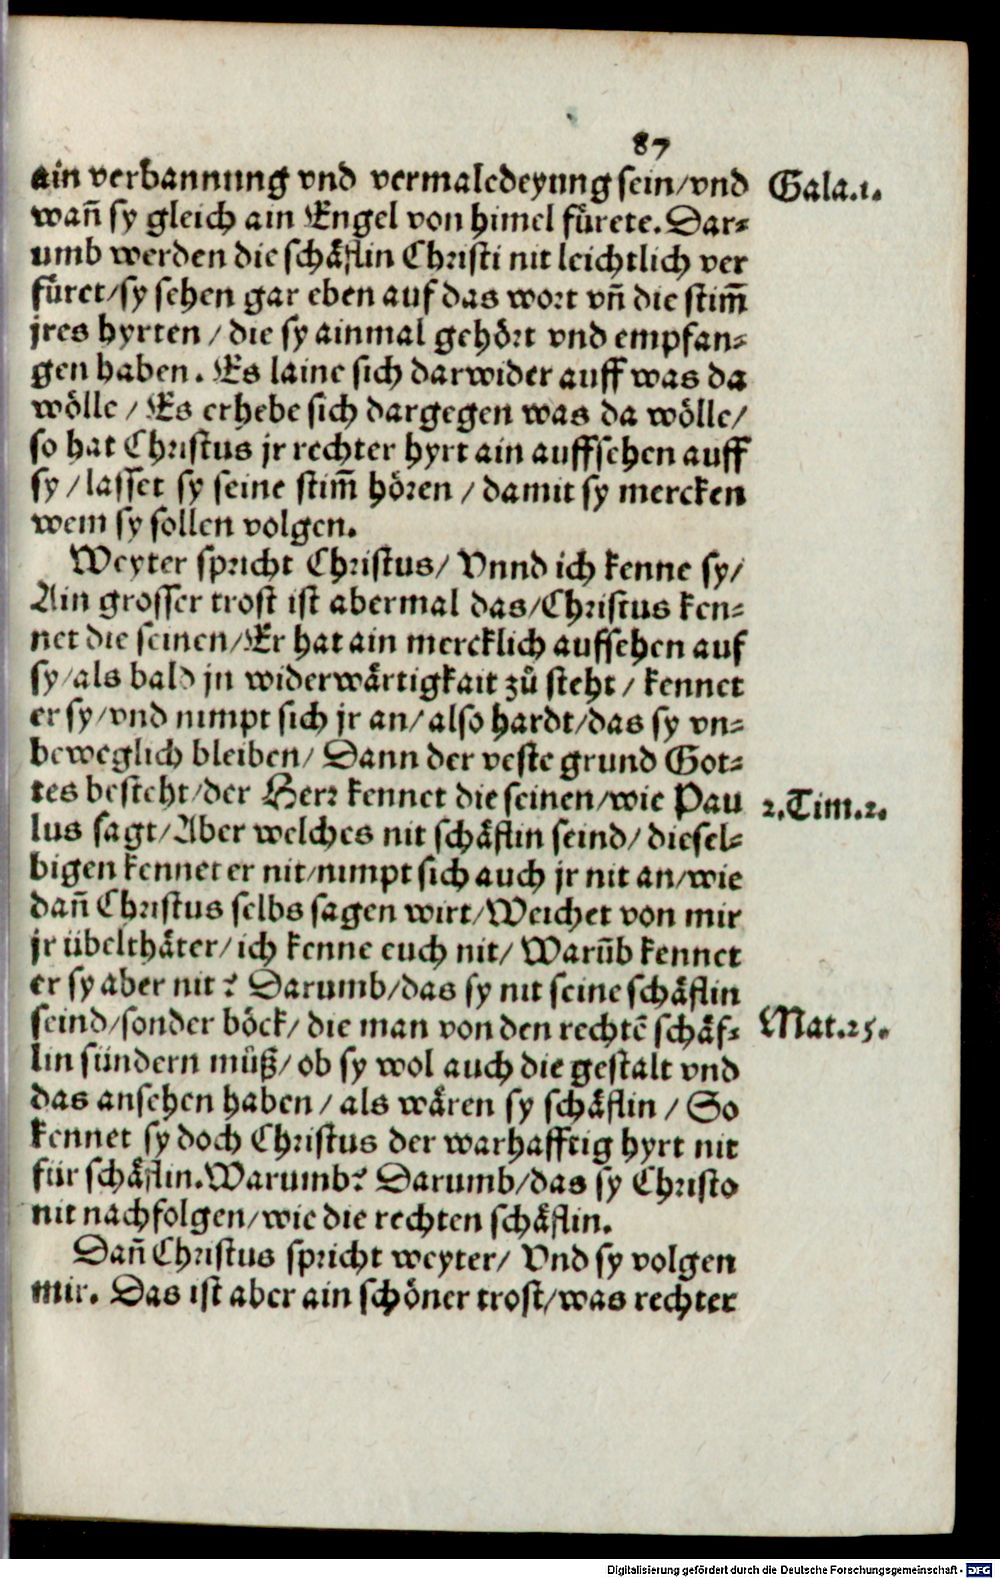 87
ain verbannung vnd vermaledeyung sein/vnd Gala.1.
wañ sy gleich ain Engel von himel fürete. Dar⸗
umb werden die schäflin Christi nit leichtlich ver
füret/sy sehen gar eben auf das wort vñ die stim̄
jres hyrten / die sy ainmal gehört vnd empfan⸗
gen haben. Es laine sich darwider auff was da
wölle / Es erhebe sich dargegen was da wölle/
so hat Christus jr rechter hyrt ain auffsehen auff
sy / lasset sy seine stim̄ hören / damit sy mercken
wem sy sollen volgen.
Weyter spricht Christus/ Vnnd ich kenne sy/
Ain grosser trost ist abermal das/Christus ken⸗
net die seinen/Er hat ain mercklich aufsehen auf
sy/als bald jn widerwärtigkait zů steht / kennet
er sy/vnd nimpt sich jr an/also hardt/das sy vn⸗
beweglich bleiben/ Dann der veste grund Got⸗
tes besteht/der Herr kennet die seinen/wie Pau 2.Tim.2.
lus sagt/Aber welches nit schäflin seind/ diesel⸗
bigen kennet er nit/nimpt sich auch jr nit an/wie
dañ Christus selbs sagen wirt/Weichet von mir
jr übelthäter/ich kenne euch nit/ Warūb kennet
er sy aber nit? Darumb/das sy nit seine schäflin
seind/sonder böck/ die man von den rechtē schäf⸗ Mat.25.
lin sündern müß/ ob sy wol auch die gestalt vnd
das ansehen haben/ als wären sy schäflin / So
kennet sy doch Christus der warhafftig hyrt nit
für schäflin. Warumb? Darumb/das sy Christo
nit nachfolgen/wie die rechten schäflin.
Dañ Christus spricht weyter/ Vnd sy volgen
mir. Das ist aber ain schöner trost/was rechter
Digitalisierung gefördert durch die Deutsche Forschungsgemeinschaft - DFG